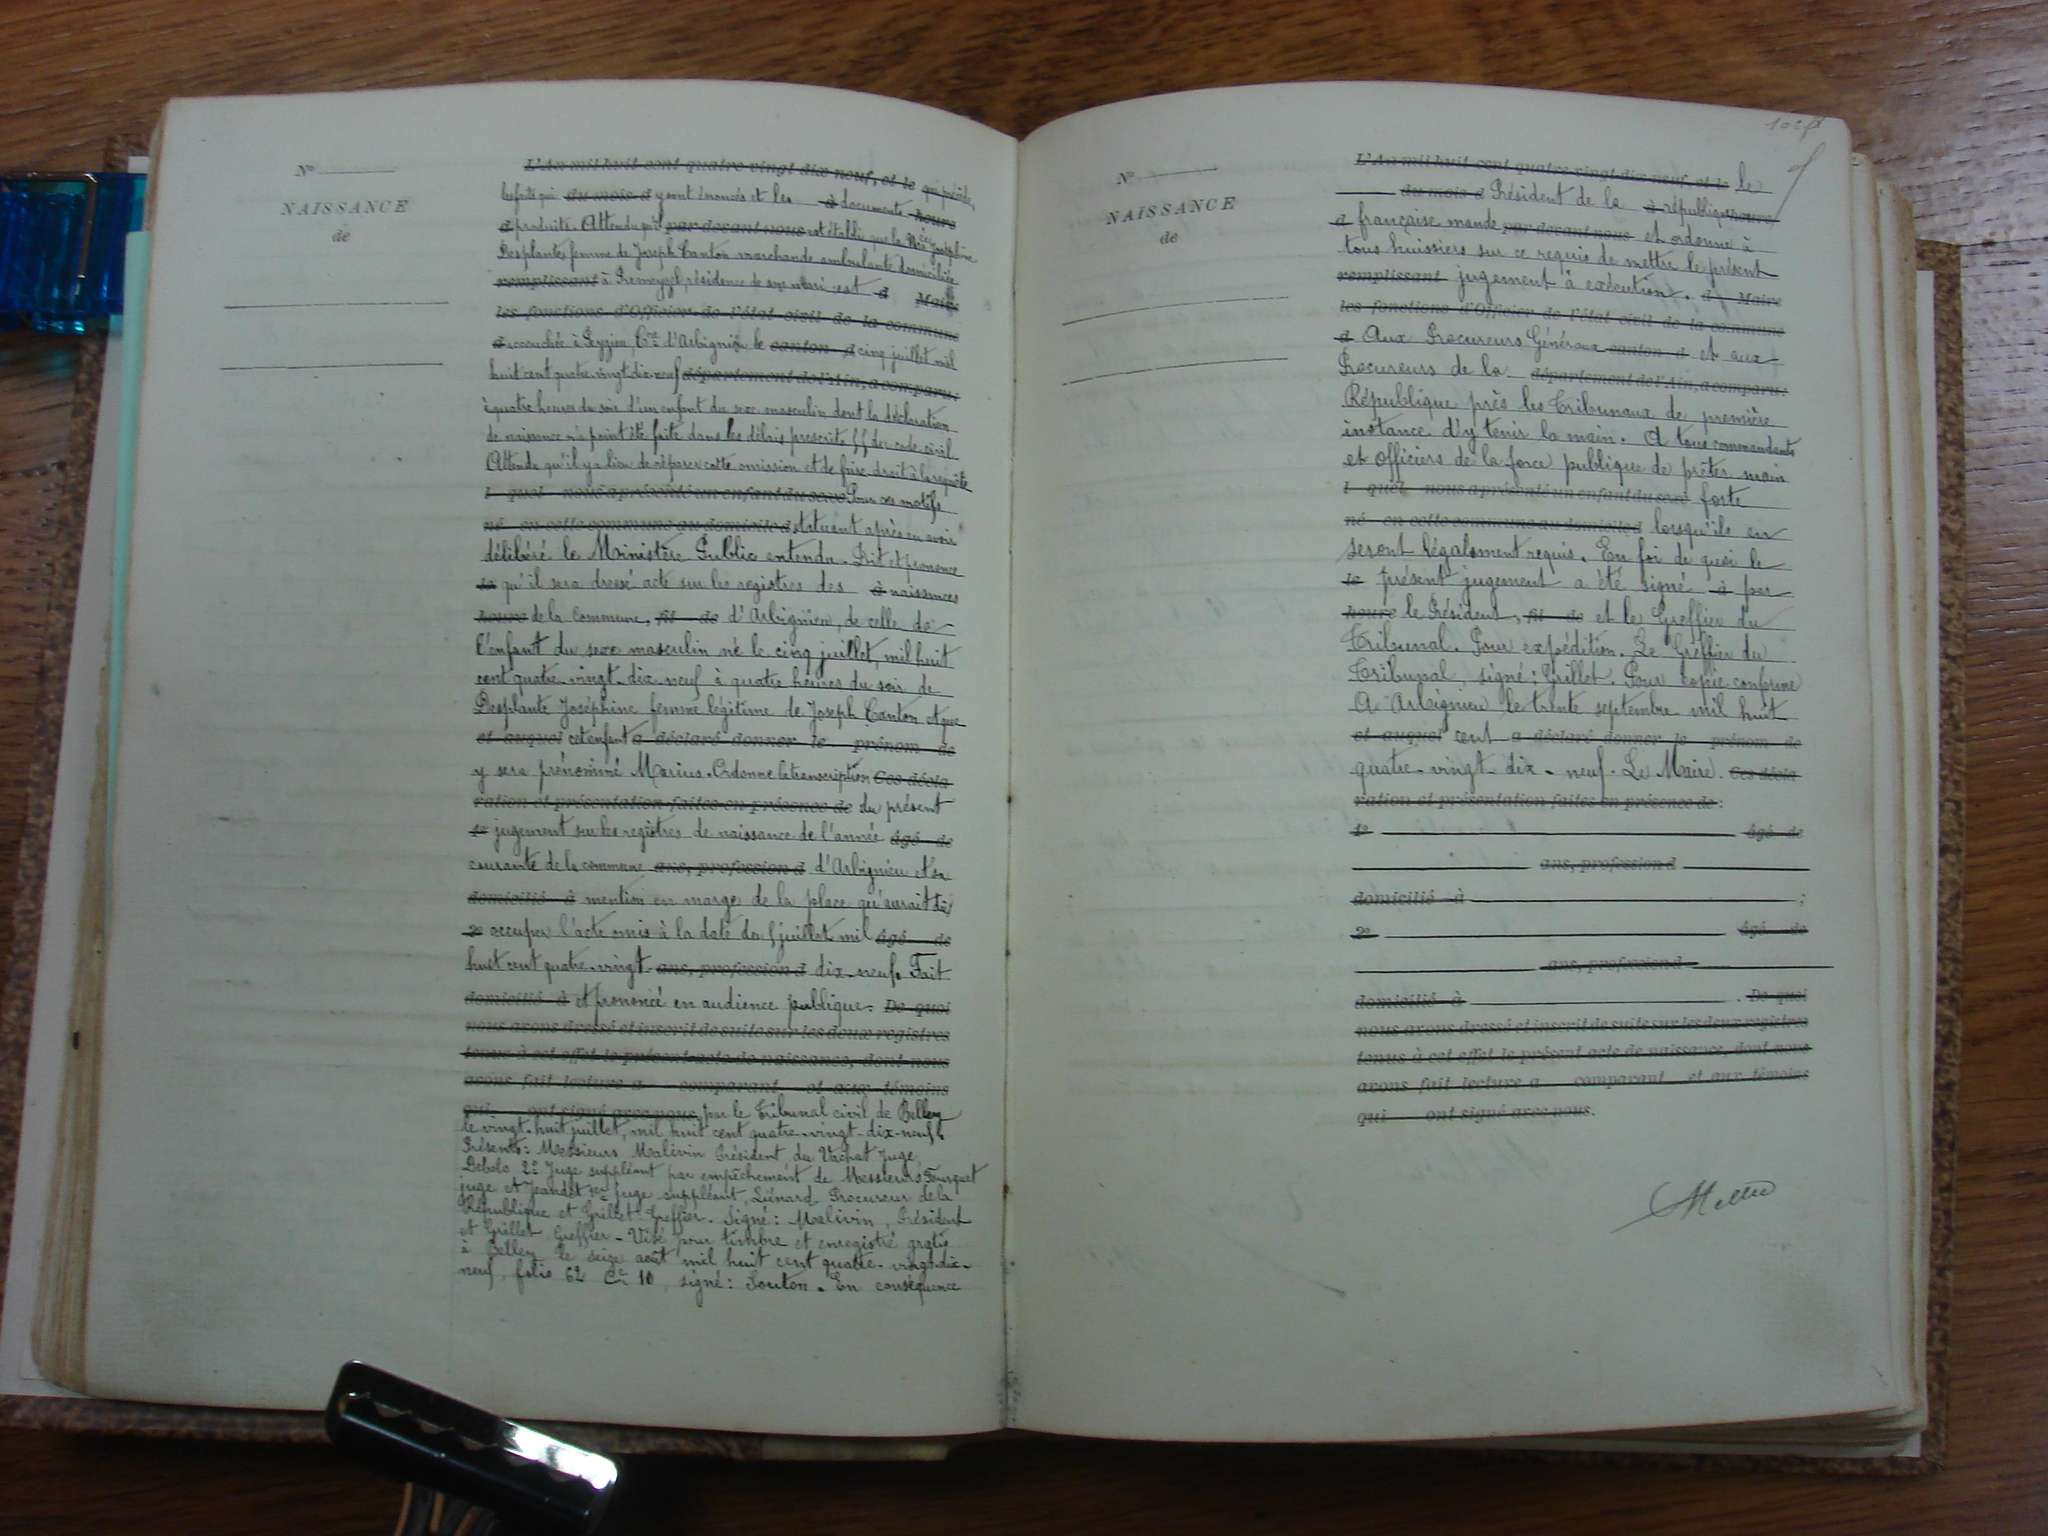 N°
NAISSANCE
de
L'An mil huit cent quatre vingt dix neuf, et le qui précède,
les faits qui du mois d y sont énoncés et les à documents heure
d produits. Attendu qu'il par devant nous est établi que la Joséphine
Desplante, femme de Joseph Canton marchande ambulante domiciliée
remplissant à Premeyzel, résidence de son mari est d Maire
les fonctions d'Officier de l'état civil de la commune
d accouchée à Peyzieu, Cne d'Arbignieu le canton d cinq juillet mil
huit cent quatre vingt dix neuf département de l'Ain, a comparu:
à quatre heures du soir d'un enfant du sexe masculin dont la déclaration
de naissance n'a point été faite dans les délais prescrits du code civil
Attendu qu'il y a lieu de réparer cette omission et de faire droit à la requête
l quel nous a présenté un enfant du sexe Pour ces motifs
né en cette commune au domicile d statuant après en avoir
délibéré le Ministère Public entendu. Dit et prononce
le qu'il sera dressé acte sur les registres des à naissances
heure de la Commune, fil de d'Arbignieu, de celle de
l'enfant du sexe masculin né le cinq juillet, mil huit
cent quatre vingt dix neuf à quatre heures du soir de
Desplante Joséphine femme légitime de Joseph Canton et que
et auquel cet enfant a déclaré donner le prénom de
y sera prénommé Marius. Ordonne la transcription Ces décla
ration et présentation faites en présence de du présent
1o jugement sur les registres de naissance de l'année âgé de
courante de la commune ans, profession d d'Arbignieu et sa
domicilié à mention en marge de la place qu'aurait dû
2o occuper l'acte omis à la date du 5 juillet mil âgé de
huit cent quatre-vingt ans, profession d dix-neuf. Fait
domicilié à et prononcé en audience publique. De quoi
nous avons dressé et inscrit de suite sur les deux registres
tenus à cet effet le présent acte de naissance, dont nous
avons fait lecture a comparant et aux témoins
qui ont signé avec nous par le Tribunal civil de Belley
le vingt-huit juillet, mil huit cent quatre-vingt-dix-neuf.
Présents: Messieurs Malivin Président, du Vachat Juge,
Debolo 2e Juge suppléant par empêchement de Messieurs Fourquet
juge et Jeandet 1er juge suppléant, Liénard Procureur de la
République et Grillet Greffier. Signé: Malivin, Président
et Grillet Greffier - Visé pour timbre et enregistré gratis
à Belley le seize août mil huit cent quatre-vingt-dix-
neuf, folio 62 Ce 10, signé: Souton. En conséquence
N°
NAISSANCE
de
L'An mil huit cent quatre vingt dix neuf, et le le
du mois d Président de la à république heure
d française mande par devant nous et ordonne à
tous huissiers sur ce requis de mettre le présent
remplissant jugement à exécution. d Maire
les fonctions d'Officier de l'état civil de la commune
d Aux Procureurs Généraux canton d et aux
Procureurs de la département de l'Ain, a comparu:
République près les Tribunaux de première
instance d'y tenir la main. A tous commandants
et officiers de la force publique de prêter main
l quel nous a présenté un enfant du sexe forte
né en cette commune au domicile d lorsqu'ils en
seront légalement requis. En foi de quoi le
le présent jugement a été signé à par
heure le Président, fil de et le Greffier du
Tribunal. Pour expédition. Le Greffier du
Tribunal, signé: Grillet. Pour copie conforme
A Arbignieu le trente septembre mil huit
et auquel cent a déclaré donner le prénom de
quatre-vingt dix-neuf. Le Maire. Ces décla
ration et présentation faites en présence de:
1o âgé de
ans, profession d
domicilié à ;
2o âgé de
ans, profession d
domicilié à . De quoi
nous avons dressé et inscrit de suite sur les deux registres
tenus à cet effet le présent acte de naissance, dont nous
avons fait lecture a comparant et aux témoins
qui ont signé avec nous.